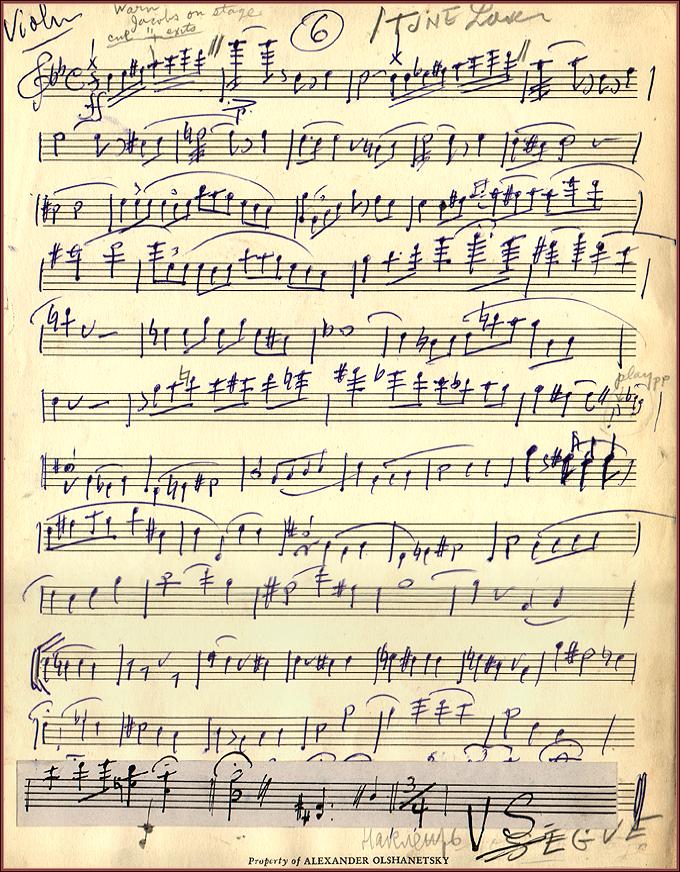 Violin
Warn
Jacobs on stage
cue "4 exits
6
1 TUNE Lover
ff
p
play pp
3/4
VS
SEGUE
Наклеить
Property of ALEXANDER OLSHANETSKY